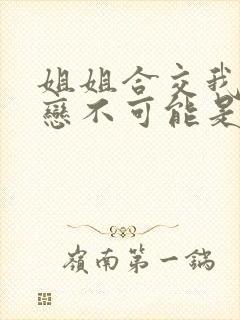 姐姐合交我
戀不可能是
嶺南第一鍋